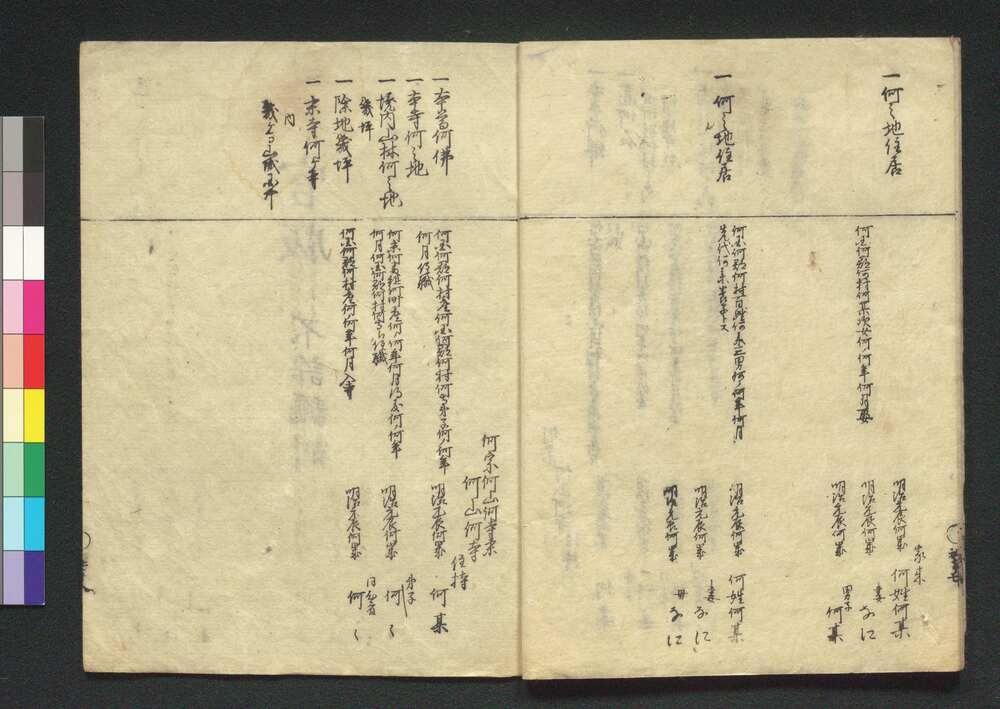 一何々地住居
何国何郡何村何某次女何何年何月娶
家来
明治元辰何歳 何姓何某
明治元辰何歳 妻なに
明治元辰何歳 男子何某
一何々地住居
何国何郡何村百姓何某二男何何年何月
先代何某
明治元辰何歳 何姓何某
明治元辰何歳 妻なに
明治元辰何歳 母なに
何宗何山何寺末
何山何寺
住持
一本尊何佛
何国何郡何村産何国何郡何村何寺弟子何何年
何月住職
明治元辰何歳 何某
一本寺何々地
一境内山林何々地
幾坪
何宗何寺組何町産何何年何月得度何何年
何月何国何郡何村何寺住職
明治元辰何歳 弟子何々
一除地幾坪
何国何郡何村産何何年何月入寺
明治元辰何歳 何々
一末寺何ヶ寺
内